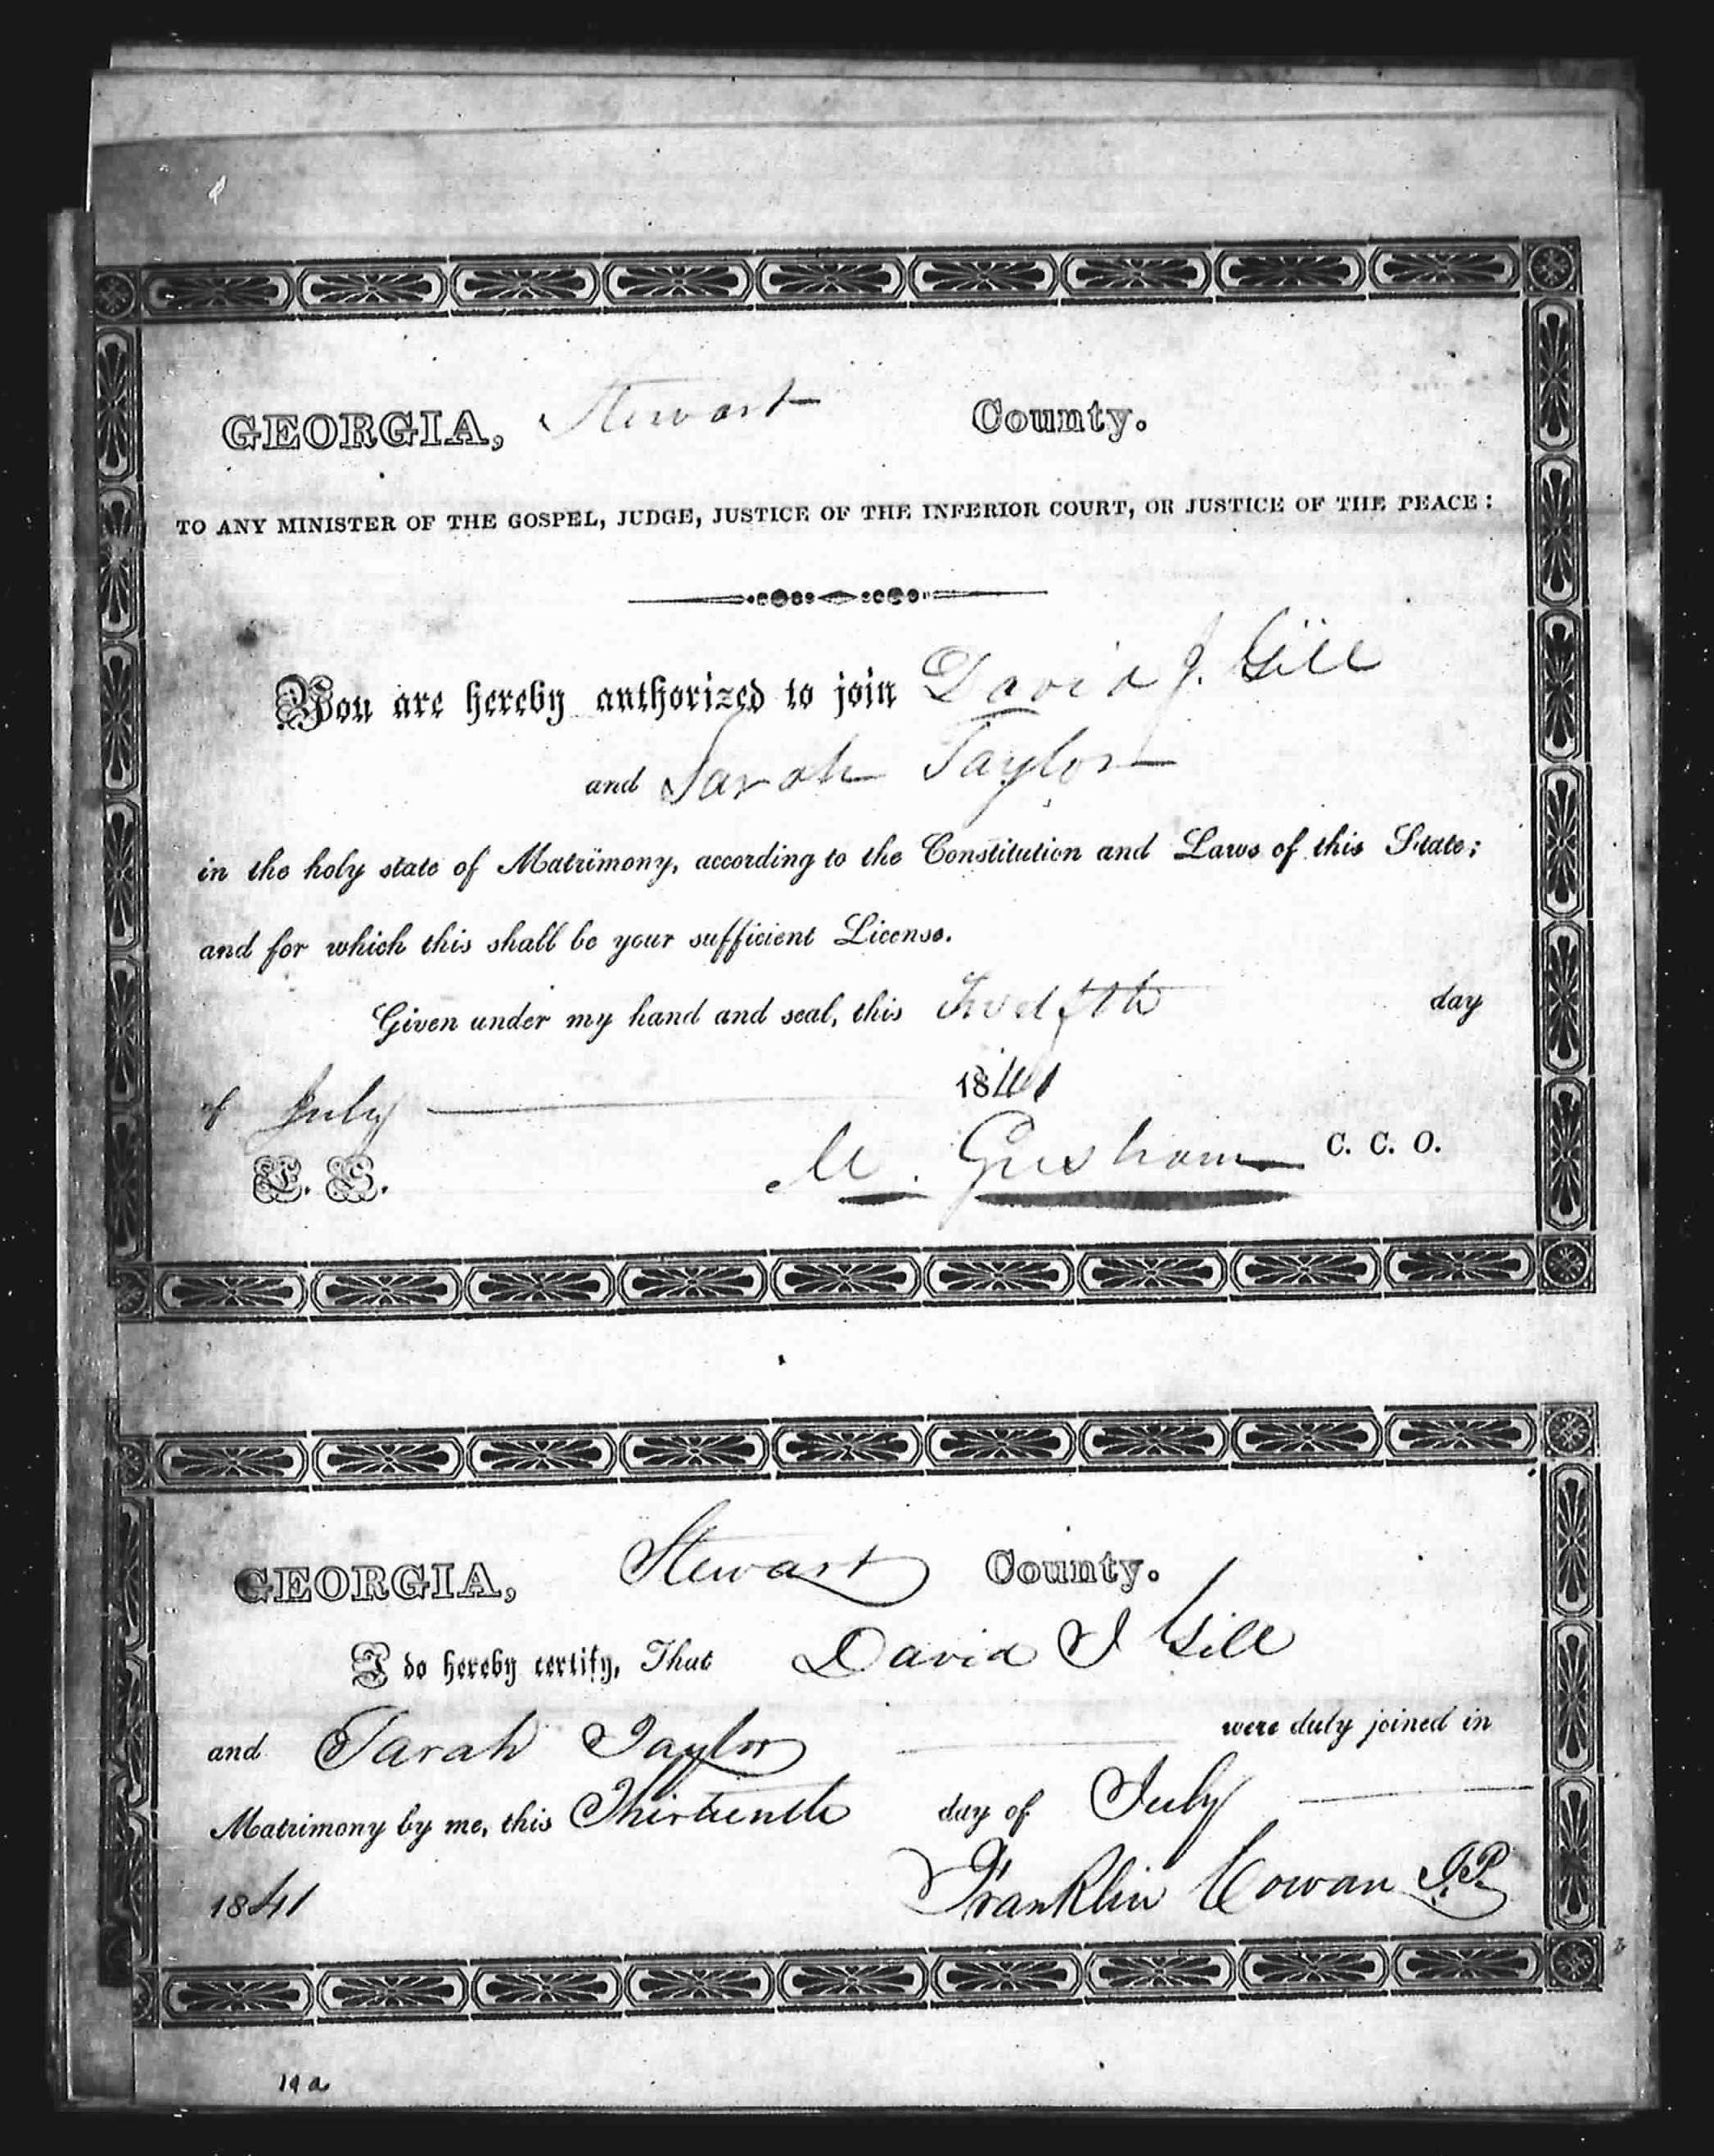 GEORGIA, Stewart County.
TO ANY MINISTER OF THE GOSPEL, JUDGE, JUSTICE OF THE INFERIOR COURT, OR JUSTICE OF THE PEACE:
You are hereby authorized to join David J. Gill
and Sarah Taylor
in the holy state of Matrimony, according to the Constitution and Laws of this State;
and for which this shall be your sufficient License.
Given under my hand and seal, this Twelfth day
of July 1841
L. S. M. Gresham C. C. O.
GEORGIA, Stewart County.
I do hereby certify, That David J Gill
and Sarah Taylor were duly joined in
Matrimony by me, this Thirteenth day of July
1841 Franklin Cowan J.P.
19 a